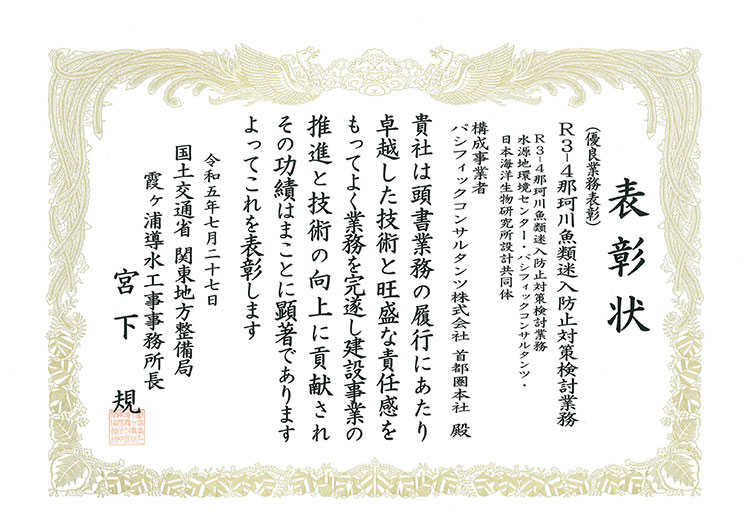 表彰状
(優良業務表彰)
R3-4那珂川魚類迷入防止対策検討業務
R3-4那珂川魚類迷入防止対策検討業務
水源地環境センター・パシフィックコンサルタンツ・
日本海洋生物研究所設計共同体
構成事業者
パシフィックコンサルタンツ株式会社 首都圏本社 殿
貴社は頭書業務の履行にあたり
卓越した技術と旺盛な責任感を
もってよく業務を完遂し建設事業の
推進と技術の向上に貢献され
その功績はまことに顕著であります
よってこれを表彰します
令和五年七月二十七日
国土交通省 関東地方整備局
霞ヶ浦導水工事事務所長
宮下 規